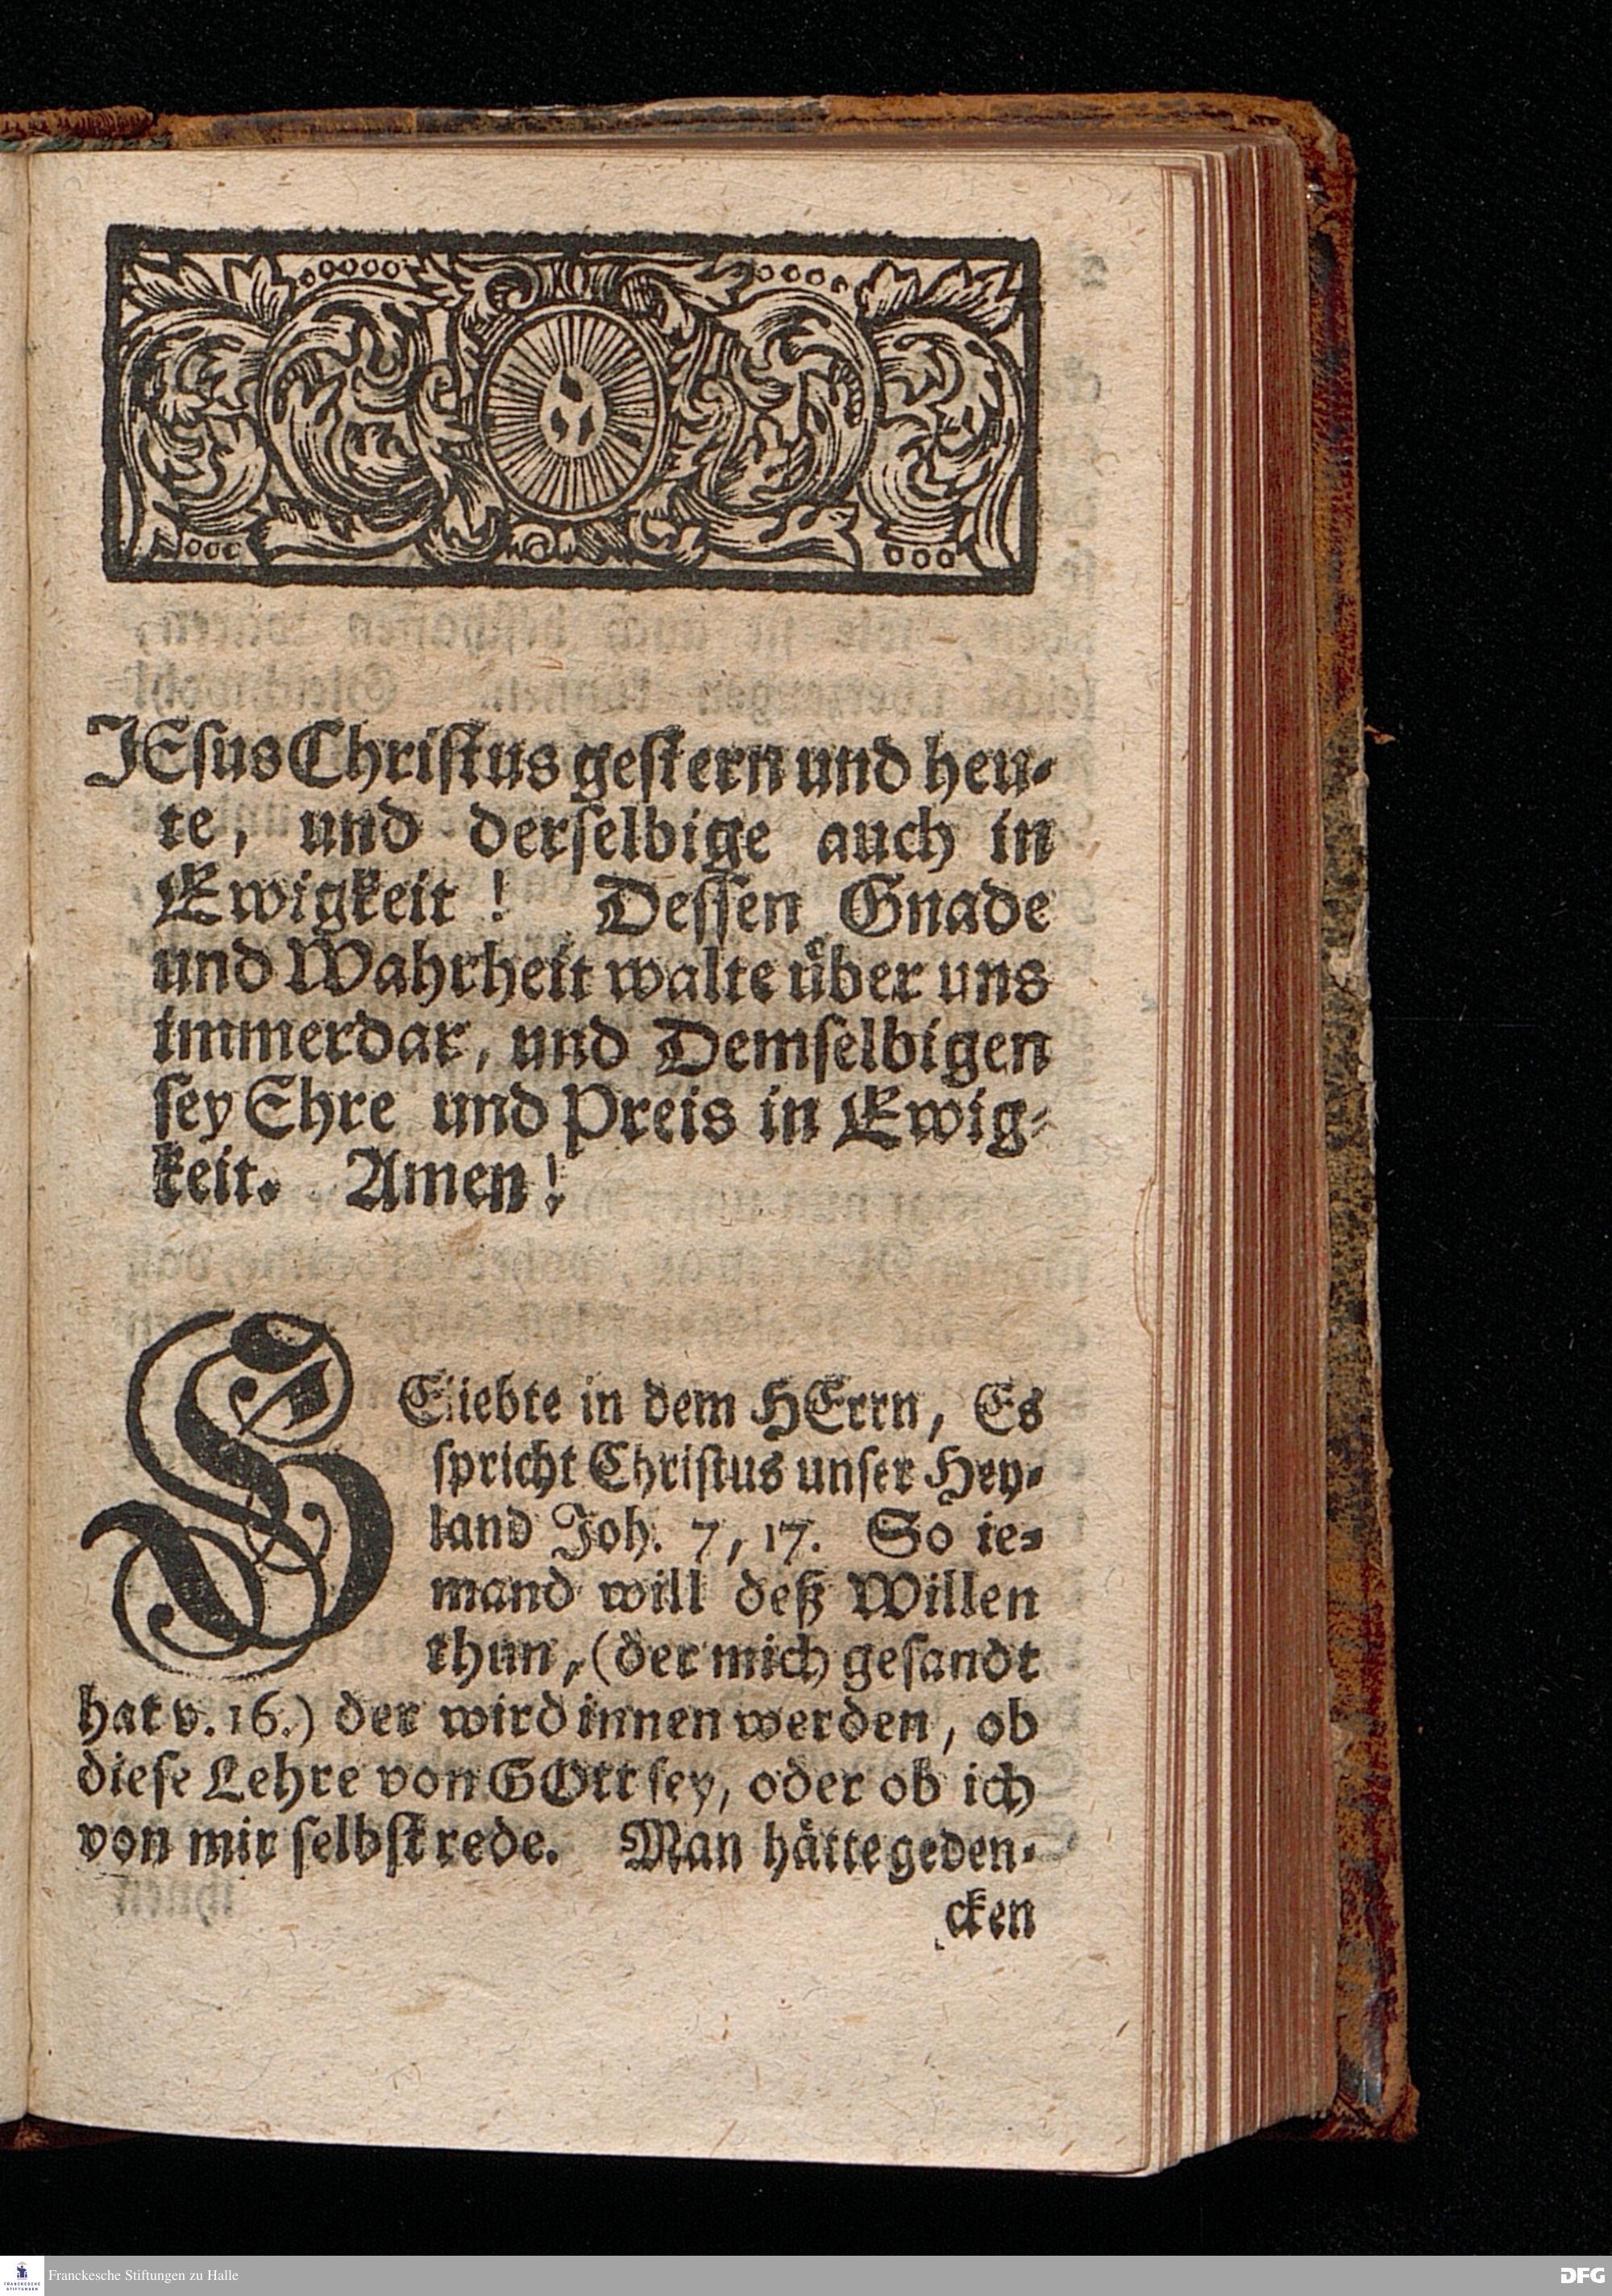 JEsus Christus gestern und heu-
te, und derselbige auch in
Ewigkeit! Dessen Gnade
und Wahrheit walte über uns
immerdar, und Demselbigen
sey Ehre und Preis in Ewig-
keit. Amen!
GEliebte in dem HErrn, Es
spricht Christus unser Hey-
land Joh. 7, 17. So ie-
mand will deß Willen
thun, (der mich gesandt
hat v. 16.) der wird innen werden, ob
diese Lehre von GOtt sey, oder ob ich
von mir selbst rede. Man hätte geden-
cken
Franckesche Stiftungen zu Halle
FRANCKESCHE
STIFTUNGEN
DFG